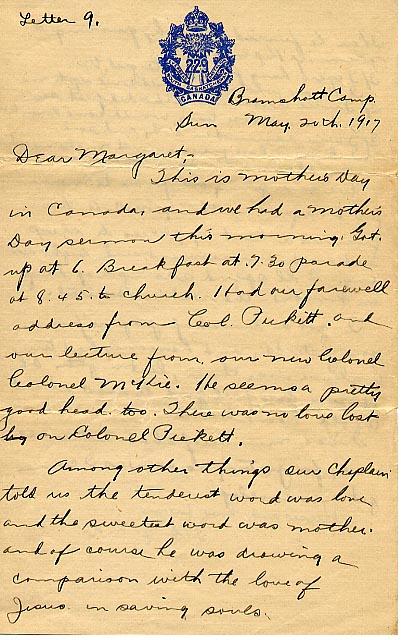 Letter 9.
229
CANADA
Bramshott Camp.
Sun May, 20th, 1917
Dear Margaret,-
This is mothers Day
in Canada, and we had a mothers
Day sermon this morning. Got.
up at 6. Breakfast at 7.30 parade
at 8.45. to church. Had our farewell
address from Col. Pickett. and
our lecture from, our new Colonel
Colonel McKie. He seems a pretty
good head. too. There was no love lost
on Colonel Pickett.
Among other things our Chaplain
told us the tenderest word was love
and the sweetest word was mother.
and of course he was drawing a
comparison with the love of
Jesus in saving souls.